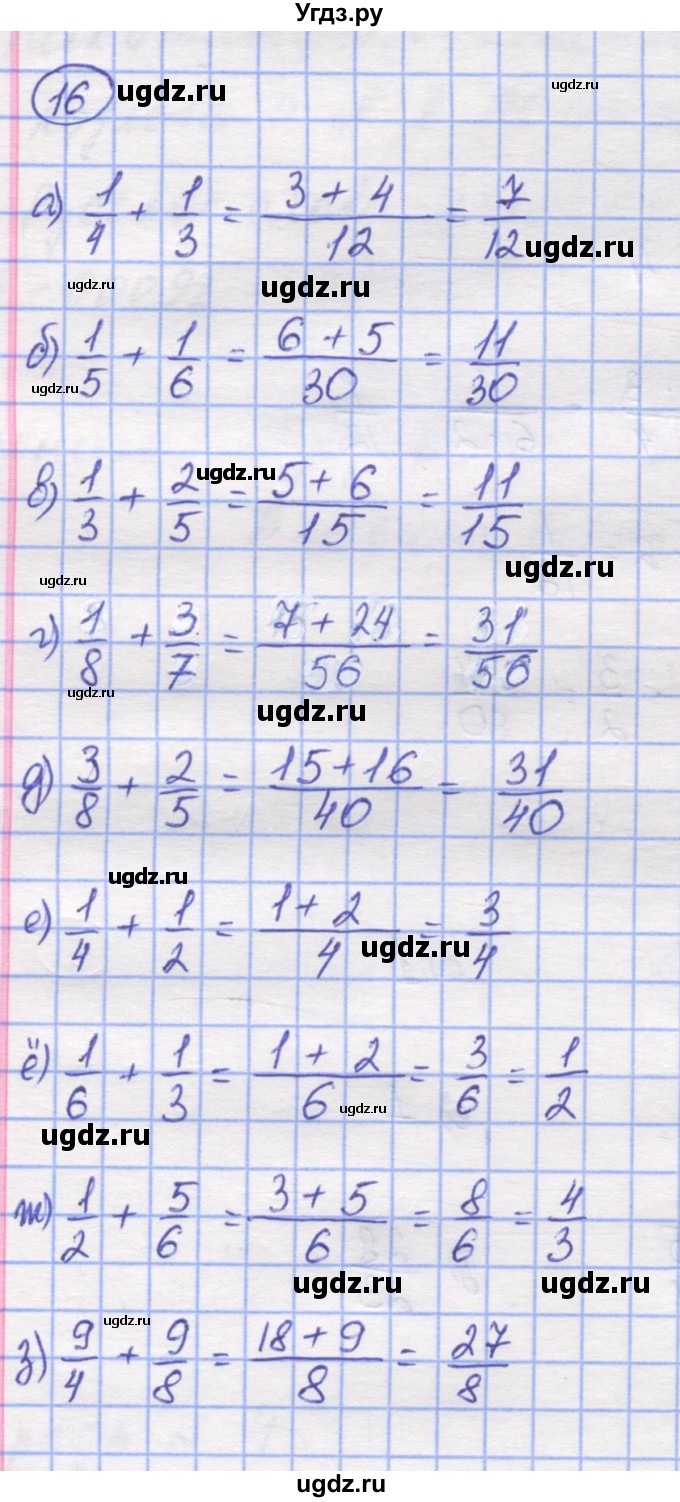 Угдз.ру
16 ugdz.ru ugdz.ru
а) 1/4 + 1/3 = (3 + 4)/12 = 7/12 ugdz.ru
ugdz.ru ugdz.ru
б) 1/5 + 1/6 = (6 + 5)/30 = 11/30
ugdz.ru
ugdz.ru
в) 1/3 + 2/5 = (5 + 6)/15 = 11/15
ugdz.ru
ugdz.ru
г) 1/8 + 3/7 = (7 + 24)/56 = 31/56
ugdz.ru
ugdz.ru
д) 3/8 + 2/5 = (15 + 16)/40 = 31/40
ugdz.ru
е) 1/4 + 1/2 = (1 + 2)/4 = 3/4
ugdz.ru
ё) 1/6 + 1/3 = (1 + 2)/6 = 3/6 = 1/2
ugdz.ru
ugdz.ru
ж) 1/2 + 5/6 = (3 + 5)/6 = 8/6 = 4/3
ugdz.ru ugdz.ru
ugdz.ru
з) 9/4 + 9/8 = (18 + 9)/8 = 27/8
ugdz.ru